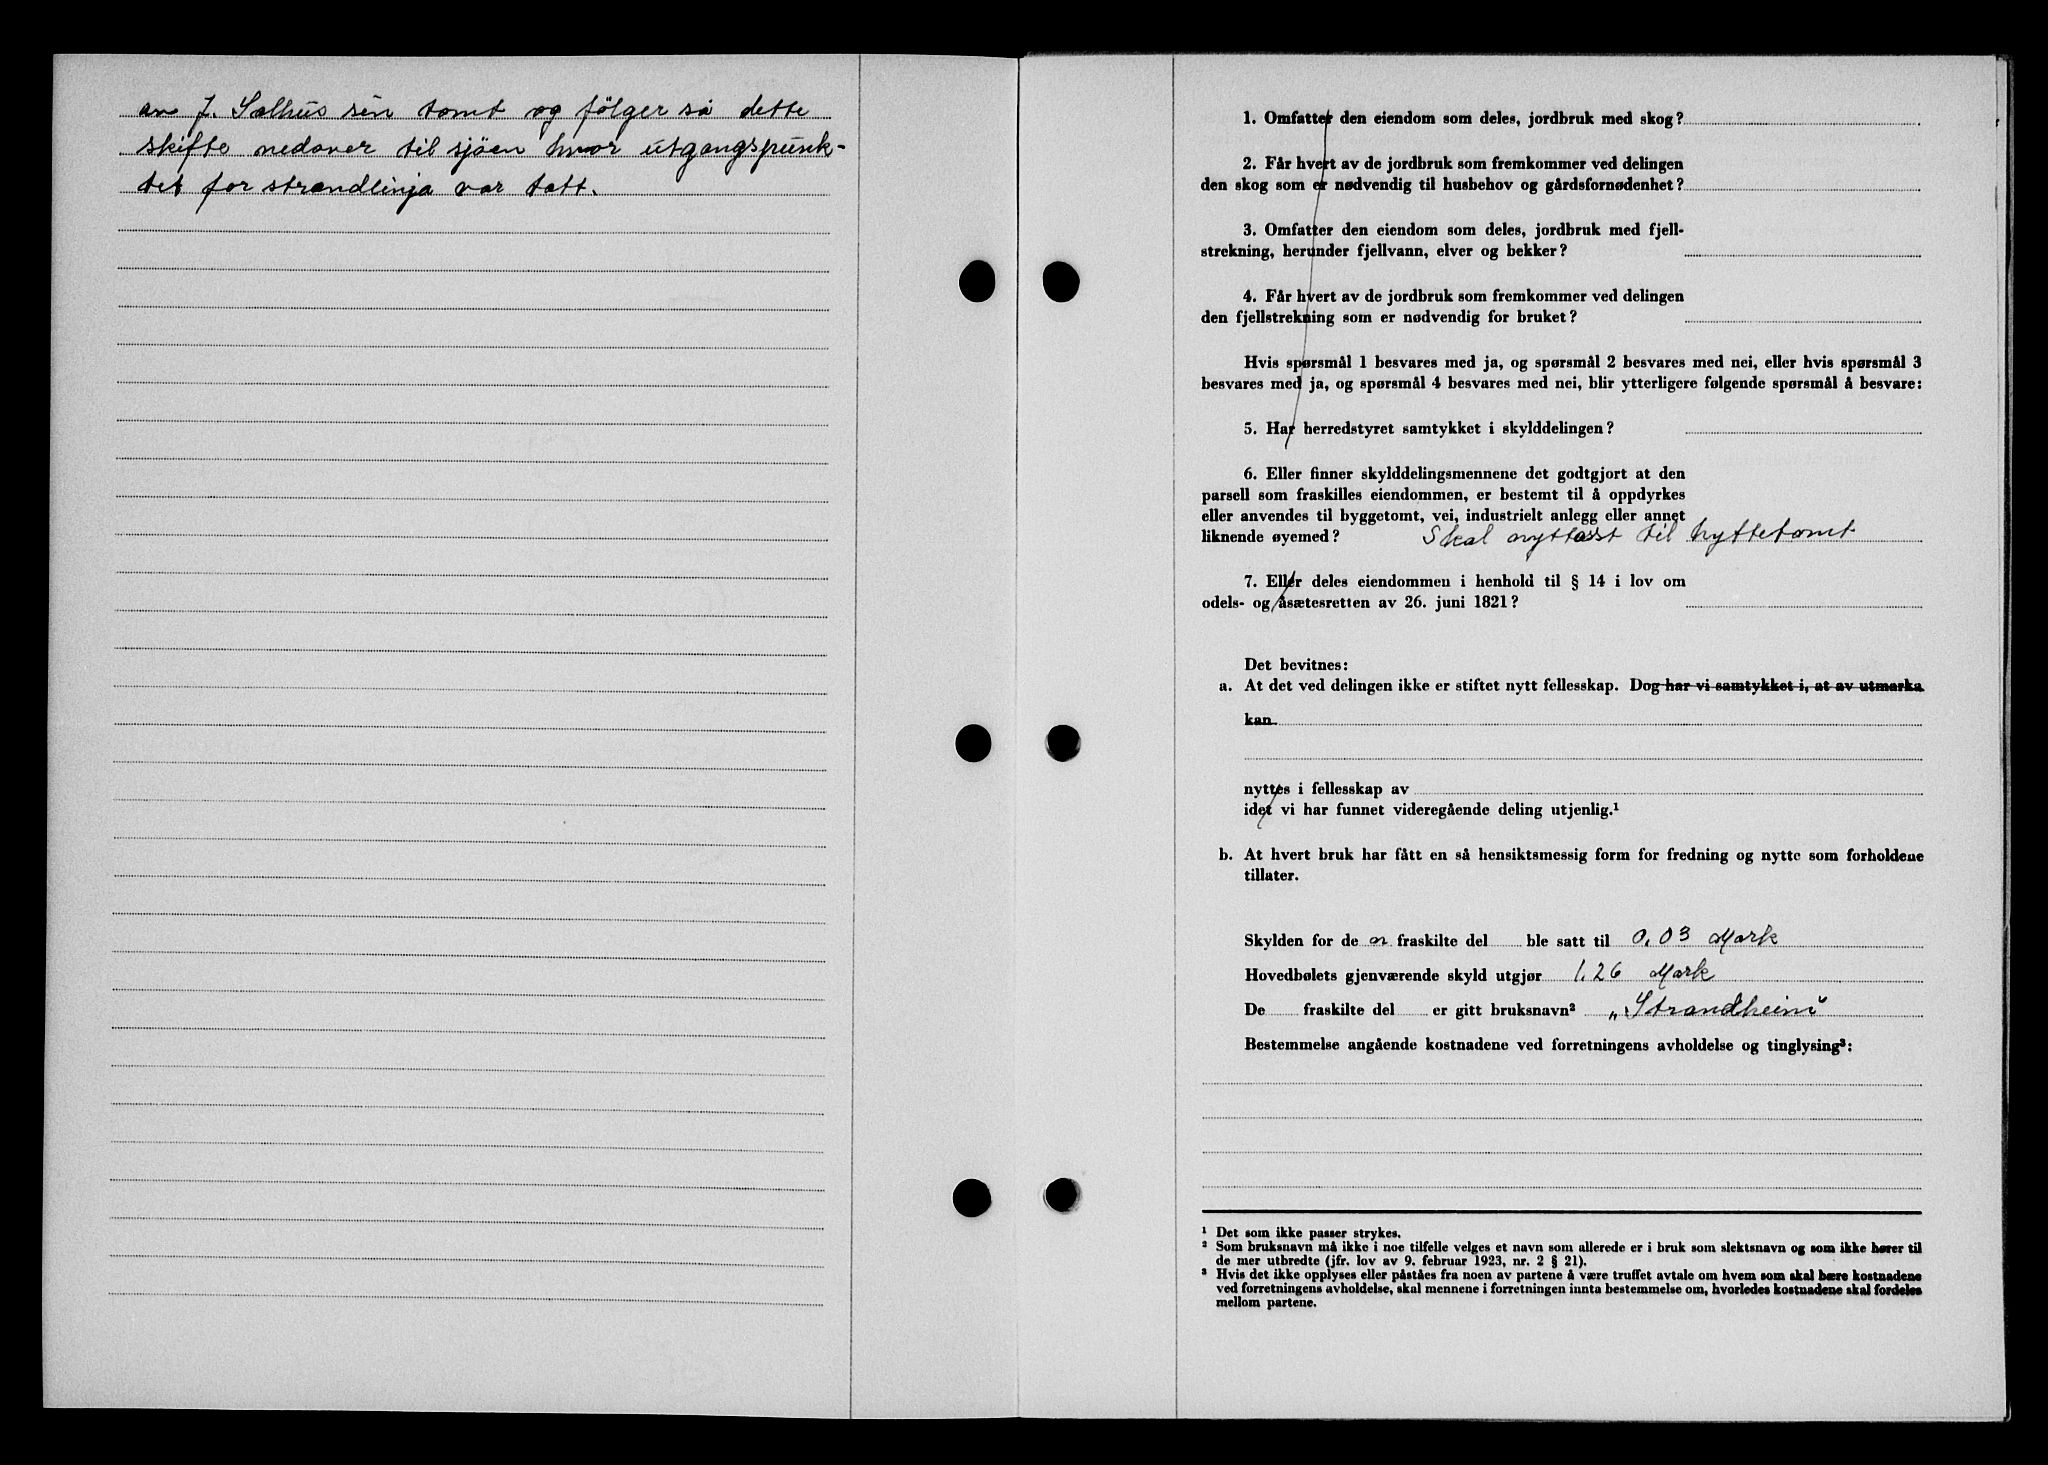 av J. Salhus sin tomt og følger så dette
skifte nedover til sjøen hvor utgangspunk-
tet for strandlinja var tatt.
1. Omfatter den eiendom som deles, jordbruk med skog?
2. Får hvert av de jordbruk som fremkommer ved delingen
den skog som er nødvendig til husbehov og gårdsfornødenhet?
3. Omfatter den eiendom som deles, jordbruk med fjell-
strekning, herunder fjellvann, elver og bekker?
4. Får hvert av de jordbruk som fremkommer ved delingen
den fjellstrekning som er nødvendig for bruket?
Hvis spørsmål 1 besvares med ja, og spørsmål 2 besvares med nei, eller hvis spørsmål 3
besvares med ja, og spørsmål 4 besvares med nei, blir ytterligere følgende spørsmål å besvare:
5. Har herredstyret samtykket i skylddelingen?
6. Eller finner skylddelingsmennene det godtgjort at den
parsell som fraskilles eiendommen, er bestemt til å oppdyrkes
eller anvendes til byggetomt, vei, industrielt anlegg eller annet
liknende øyemed? Skal nyttast til hyttetomt
7. Eller deles eiendommen i henhold til § 14 i lov om
odels- og åsætesretten av 26. juni 1821?
Det bevitnes:
a. At det ved delingen ikke er stiftet nytt fellesskap. Dog har vi samtykket i, at av utmarka
kan
nyttes i fellesskap av
idet vi har funnet videregående deling utjenlig.¹
b. At hvert bruk har fått en så hensiktsmessig form for fredning og nytte som forholdene
tillater.
Skylden for de n fraskilte del ble satt til 0,03 Mark
Hovedbølets gjenværende skyld utgjør 1,26 Mark
De fraskilte del er gitt bruksnavn² „Strandheim"
Bestemmelse angående kostnadene ved forretningens avholdelse og tinglysing³:
¹ Det som ikke passer strykes.
² Som bruksnavn må ikke i noe tilfelle velges et navn som allerede er i bruk som slektsnavn og som ikke hører til
de mer utbredte (jfr. lov av 9. februar 1923, nr. 2 § 21).
³ Hvis det ikke opplyses eller påståes fra noen av partene å være truffet avtale om hvem som skal bære kostnadene
ved forretningens avholdelse, skal mennene i forretningen innta bestemmelse om, hvorledes kostnadene skal fordeles
mellom partene.